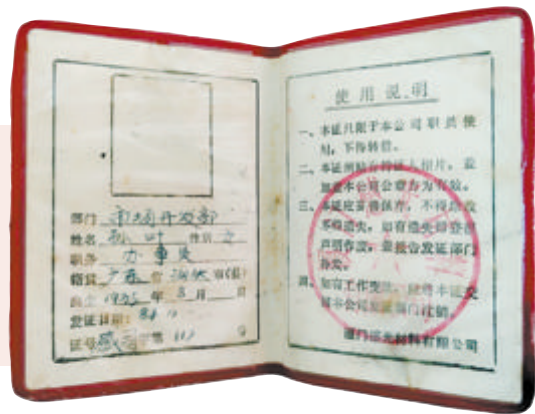 部门 市场开发部
姓名 孙叶 性别 女
职务 办事员
籍贯 广东 省 汕头 市(县)
1955 年 8 月 日
发证日期: 84.11
证号 第 号
使用说明
一、本证只限于本公司职员使
用,不得转借。
二、本证须贴有持证人相片,并
加盖本公司公章方为有效。
三、本证应妥善保存,不得涂改
不得遗失,如有遗失即登报
声明作废,并报告发证部门
补发。
四、如有工作变动,应将本证交
回本公司发证部门注销。
厦门感光材料有限公司